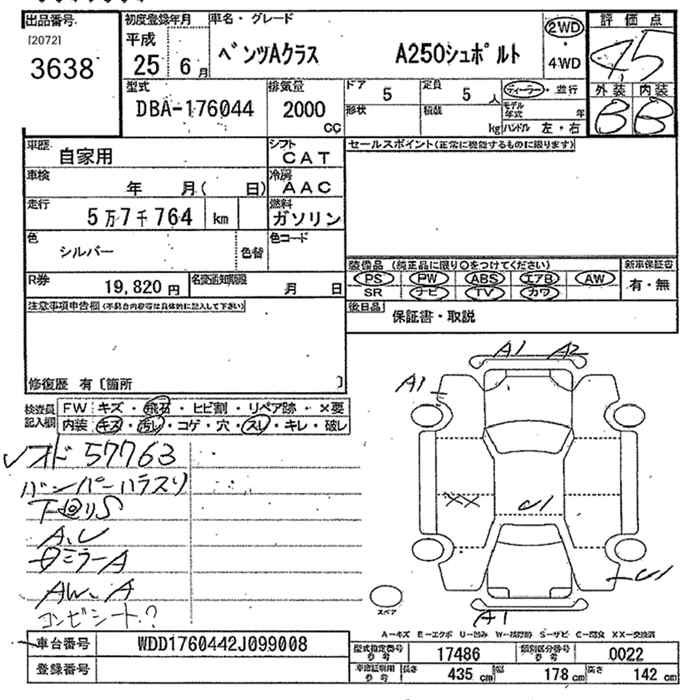 出品番号 初度登録年月 車名・グレード 2WD 評価点
[2072] 平成 ベンツAクラス A250シュポルト 4.5
3638 25 6月 4WD
型式 排気量 ドア 5 定員 5人 ディーラー・並行 外装 内装
DBA-176044 2000cc 形状 積載 kg モデル年式 年 B B
ハンドル 左・右
車歴 自家用 シフト CAT セールスポイント(正常に機能するものに限ります)
車検 年 月( 日) 冷房 AAC
走行 5万7千764 km 燃料 ガソリン
色 シルバー 色替 色コード
装備品(純正品に限り〇をつけてください) 新車保証書
R券 19,820円 名変通知期限 月 日 PS PW ABS エアB AW 有・無
SR ナビ TV カワ
注意事項申告欄(不具合内容等は具体的に記入して下さい) 後日品 保証書・取説
修復歴 有〔箇所 〕
A1 A2
A1
検査員記入欄 FW キズ・飛石・ヒビ割・リペア跡・×要
内装 キズ・汚レ・コゲ・穴・スレ・キレ・破レ
57763
バンパーハラスリ
下回りS
XX U1
A.U
ミラーA
AW.A U1
コンビシート?
スペア
A1
A-キズ E-エクボ U-凹み W-補修跡 S-サビ C-腐食 XX-交換済
車台番号 WDD1760442J099008 型式指定番号 17486 類別区分番号 0022
登録番号 車庫証明用 長さ 435cm 幅 178cm 高さ 142cm